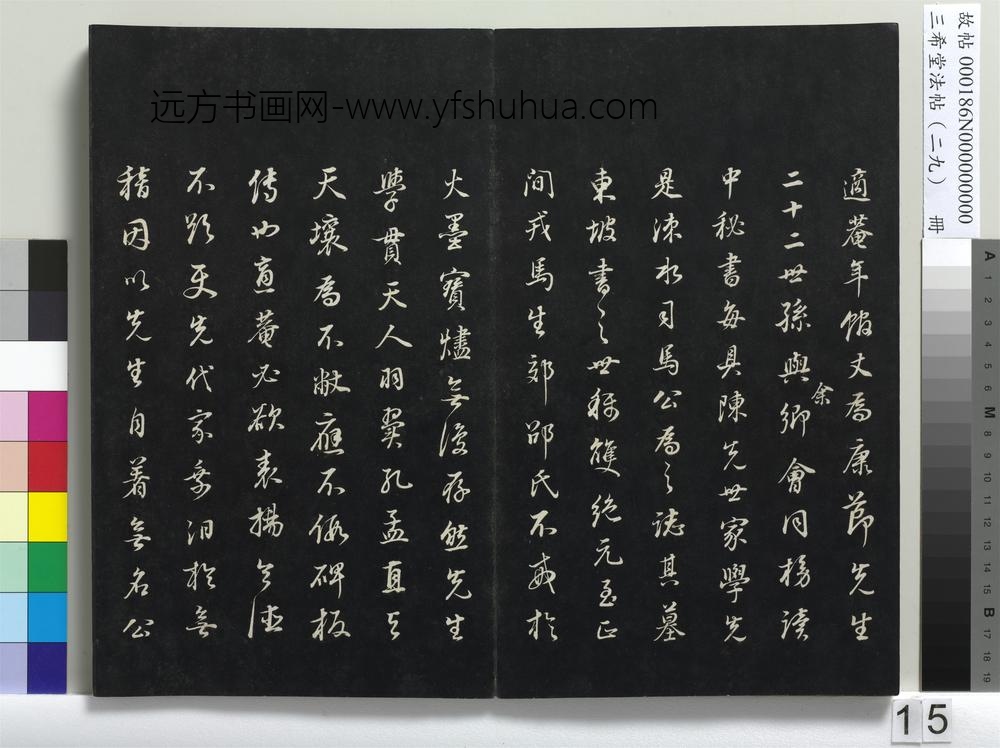 適菴年館丈為康節先生
二十二世孫與余鄉會同榜讀
中秘書每具陳先世家學先
是涑水司馬公為之誌其墓
東坡書之世稱雙絕元至正
間戎馬生郊邵氏不戒於
火墨寶燼無復存然先生
學貫天人羽翼孔孟直與
天壤為不敝應不假碑板
傳也適菴必欲表揚令德
不
先代家乘汨於無
稽因以先生自著無名公
远方书画网-www.yfshuhua.com
故帖 000186N000000000
三希堂法帖（二九） 冊
15
A 1 2 3 4 5 6 M 8 9 10 11 12 13 14 15 B 17 18 19